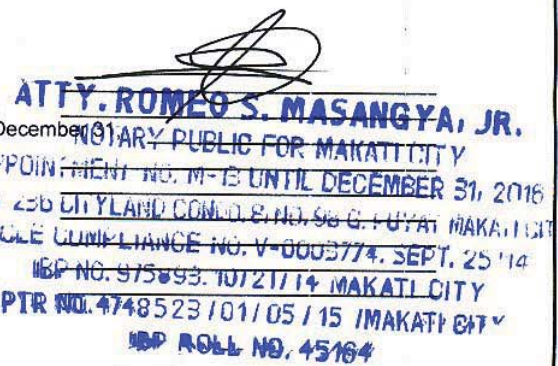 ATTY. ROMEO S. MASANGYA, JR.
December 31
NOTARY PUBLIC FOR MAKATI CITY
POINTMENT NO. M-13 UNTIL DECEMBER 31, 2016
236 CITYLAND CONDO. 8, NO. 98 G. PUYAT MAKATI CIT
CLE COMPLIANCE NO. V-0003774. SEPT. 25 '14
IBP NO. 975893. 10/21/14 MAKATI CITY
PTR NO. 4748523 / 01 / 05 / 15 / MAKATI CITY
IBP ROLL NO. 45164